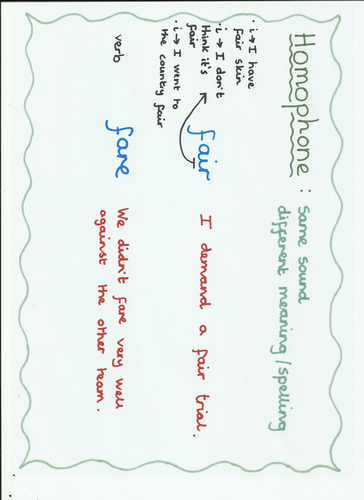 Homophone : Same sound
different meaning/spelling
· i → I have
fair skin
· i → I don't
think it's
fair
· i → I went to
the country fair
fair
I demand a fair trial.
verb
fare
We didn't fare very well
against the other team.